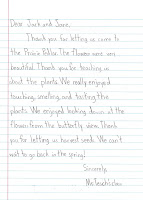 Dear Jack and Jane,
Thank you for letting us come to
the Prairie Pablo. The flowers were very
beautiful. Thank you for teaching us
about the plants. We really enjoyed
touching, smelling, and tasting the
plants. We enjoyed looking down at the
flowers from the butterfly view. Thank
you for letting us harvest seeds. We can't
wait to go back in the spring!
Sincerely,